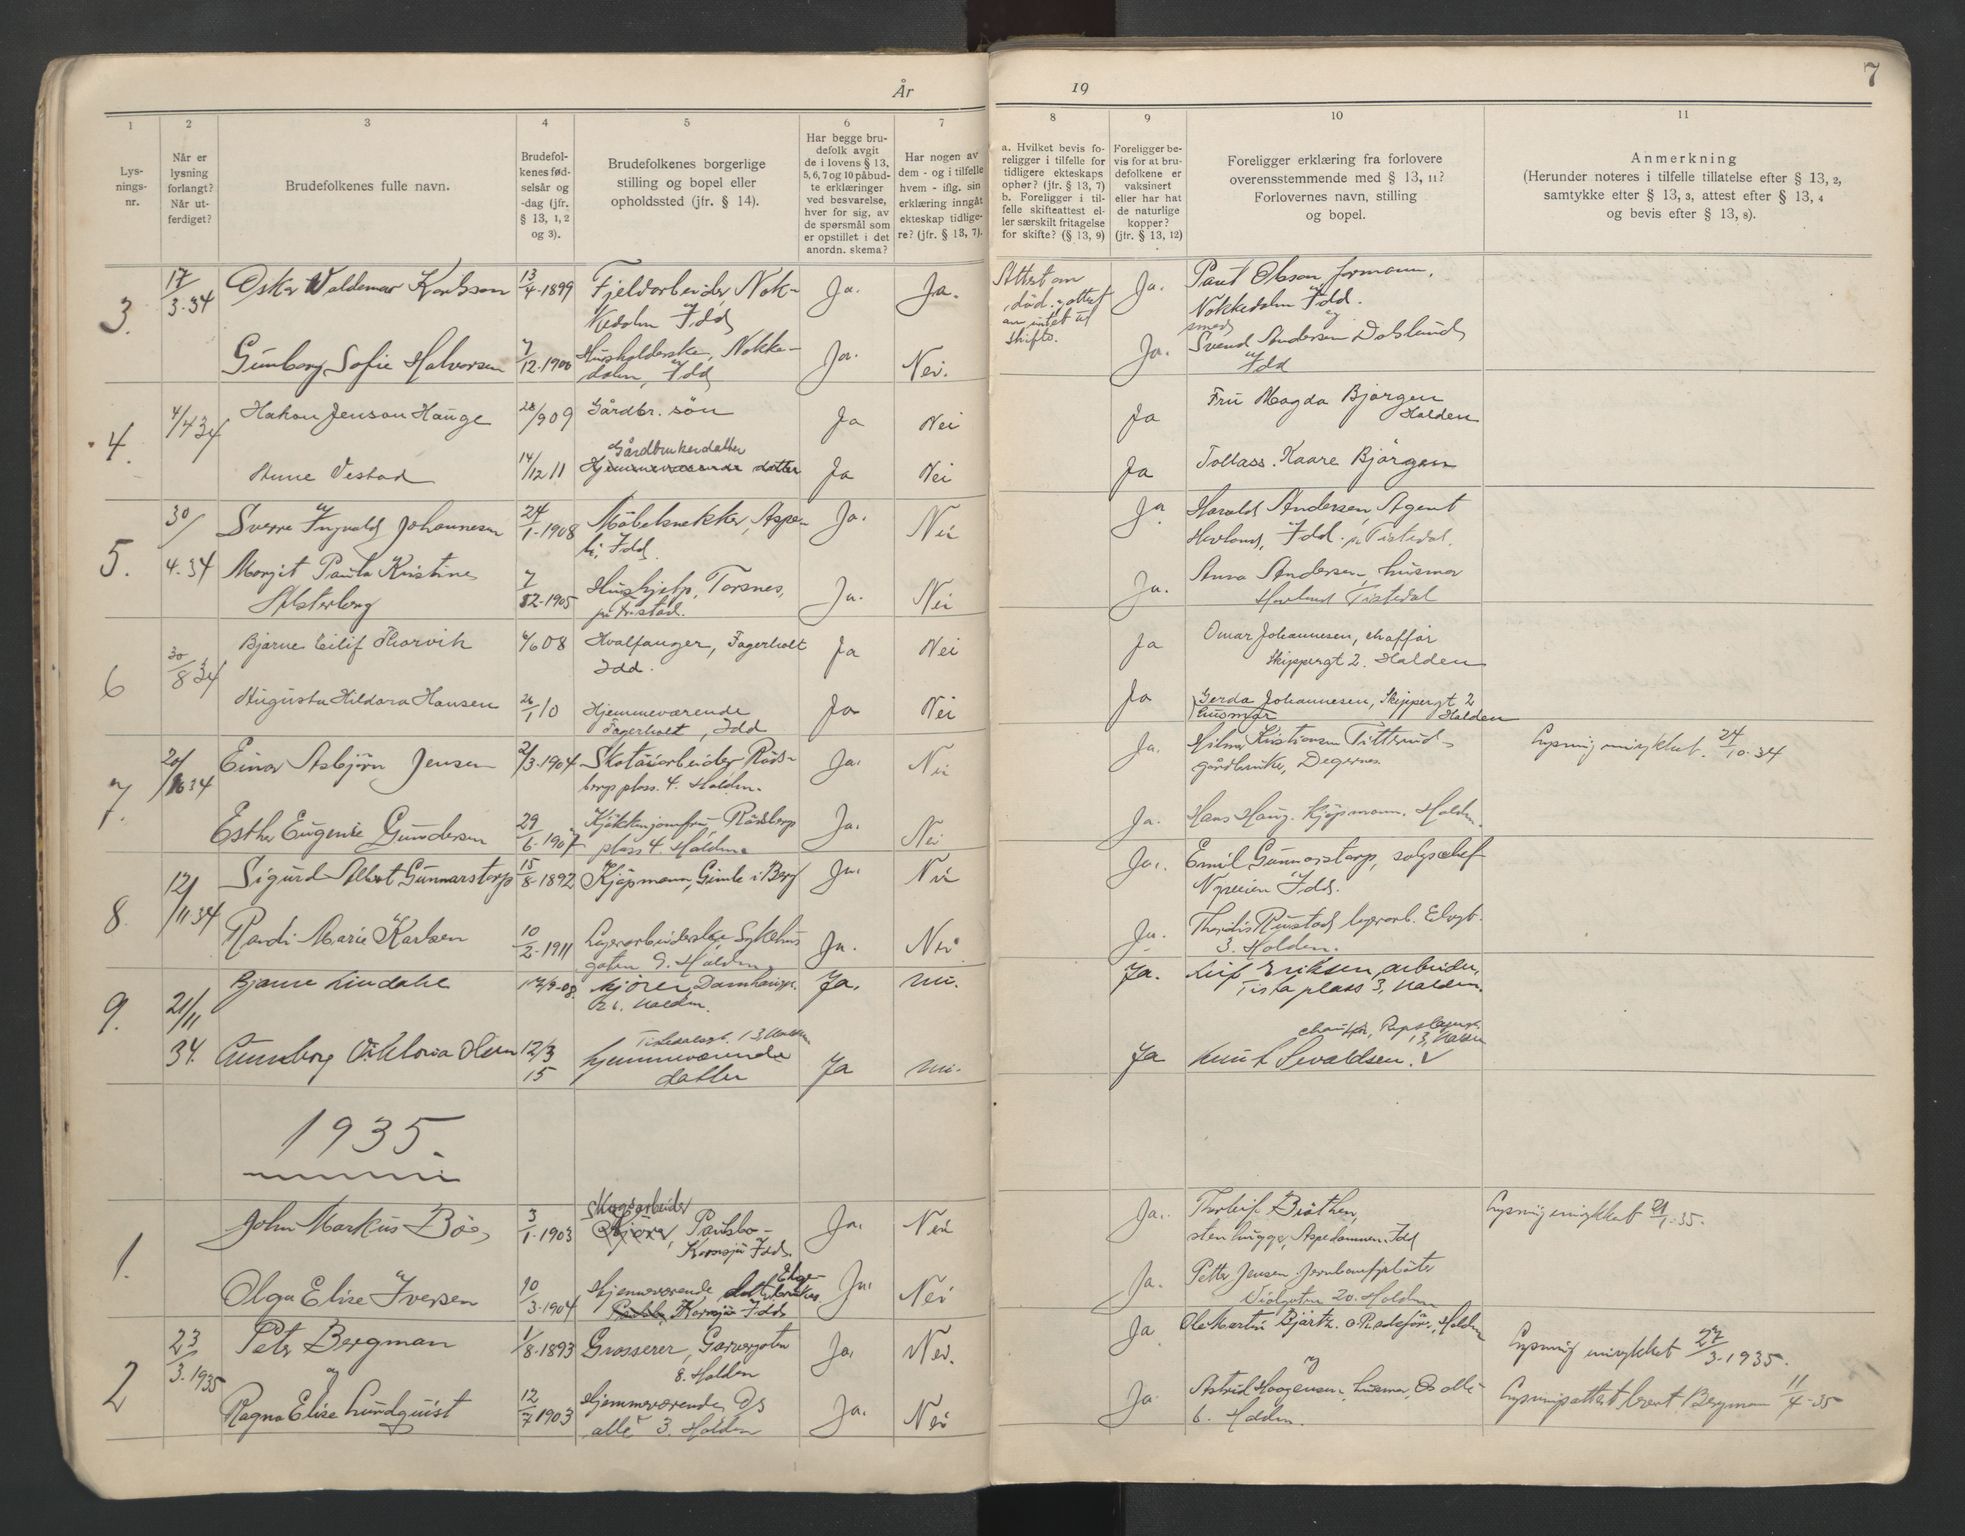 År 19 7
1 2 3 4 5 6 7 8 9 10 11
Lys-
nings-
nr.
Når er
lysning
forlangt?
Når ut-
ferdiget?
Brudefolkenes fulle navn.
Brudefol-
kenes fød-
selsår og
-dag (jfr.
§ 13, 1, 2
og 3).
Brudefolkenes borgerlige
stilling og bopel eller
opholdssted (jfr. § 14).
Har begge bru-
defolk avgit
de i lovens § 13,
5, 6, 7 og 10 påbud-
te erklæringer
ved besvarelse,
hver for sig, av
de spørsmål som
er opstillet i det
anordn. skema?
Har nogen av
dem - og i tilfelle
hvem - iflg. sin
erklæring inngåt
ekteskap tidlige-
re? (jfr. § 13, 7).
a. Hvilket bevis fo-
religger i tilfelle for
tidligere ekteskaps
ophør? (jfr. § 13, 7)
b. Foreligger i til-
felle skifteattest el-
ler særskilt fritagelse
for skifte? (§ 13, 9)
Foreligger be-
vis for at bru-
defolkene er
vaksinert
eller har hat
de naturlige
kopper?
(jfr. § 13, 12)
Foreligger erklæring fra forlovere
overensstemmende med § 13, 11?
Forlovernes navn, stilling
og bopel.
Anmerkning
(Herunder noteres i tilfelle tillatelse efter § 13, 2,
samtykke efter § 13, 3, attest efter § 13, 4
og bevis efter § 13, 8).
3. 17/3-34 Oskar Waldemar Karlsson 13/4-1899 Fjeldarbeider, Nok-
kedalen Idd Ja. Ja. Attest om
død. attest
om intet til
skifte. Ja. Paul Olsson formann,
Nokkedalen Idd. og
Gunborg Sofie Halvorsen 7/12-1900 Husholderske, Nokke-
dalen, Idd Ja. Nei. Ja. smed
Svend Andersen Dalslund
Idd
4. 4/4 34 Hakon Jenson Hauge 28/9 09 Gårdbr. søn Ja Nei Ja Fru Magda Bjørgen
Halden
Anne Vestad 14/12 11 Gårdbrukerdatter
Hjemmeværende datter Ja Nei Ja Tollass. Kaare Bjørgen
5. 30/4-34 Sverre Ingvald Johannesen 24/1-1908 Møbelsnekker, Aspe-
li, Idd. Ja. Nei Ja Harald Andersen, Agent
Hovland, Idd. pr Tistedal.
Margit Paula Kristine
7/12-1905 Hushjelp, Torsnes,
pr Fr.stad. Ja. Nei Ja. Anna Andersen, husmor
Hovland Tistedal
6 30/8 34 Bjarne Eilif Thorvik 4/6 08 Hvalfanger, Fagerholt
Idd. Ja Nei Ja Omar Johannesen, chaffør
Skippergt 2. Halden
Augusta Hildara Hansen 26/1 10 Hjemmeværende
Fagerholt, Idd Ja Nei Ja Gerda Johannesen, Skippergt 2
husmor Halden
7. 20/10 34 Einar Asbjørn Jensen 21/3-1904 Skotøiarbeider Røds-
bergs plass. 4. Halden. Ja. Nei Ja. Hilmar Kristiansen Titterud
gårdbruker, Degernes. Lysning mirykket. 24/10-34
Esther Eugenie Gundersen 29/6-1907 Kjøkkenjomfru, Rødsberg
plass 4. Halden Ja. Nei Ja. Hans Haug. Kjøpmann. Halden.
8. 12/11 34 Sigurd Albert Gunnarstorp 15/8 1892 Kjøpmann, Gimle i Berg Ja. Nei Ja. Emil Gunnarstorp, salgschef
Nyveien Idd.
Randi Marie Karlsen 10/2-1911 Lagerarbeiderske Sykehus
gaten 9. Halden Ja. Nei Ja. Thordis Rustad lagerarb. Elvegt.
3. Halden.
9. 21/11 34. Bjarne Lindahl 17/9-08. kjører, Damhaugs.
Halden. Ja. nei. Ja. Leif Eriksen, arbeider,
Tista plass 3, Halden.
Gunborg Viktoria Hern 12/3 15 Tistedalsgt. 13, Halden
hjemmeværende
datter Ja nei. Ja chauffør, Repslagergt.
13, Halden
Knut Sevaldsen.
1935.
1. John Markus Bøe, 3/1-1903 Skogsarbeider
Kjører, Paulsbo-
Kornsjø Idd. Ja. Nei Ja. Thorleif Bråthen,
stenhugger, Aspedammen, Idd Lysning mirykket 21/1-35.
Olga Elise Iversen 10/3-1904 Hjemmeværende
Kornsjø Idd Ja. Nei Ja. Petter Jensen Jernbanefullmektig
Violgaten 20. Halden
2 23/3-1935 Petr Bergman 1/8-1893 Grosserer, Garvergaten
8. Halden Ja. Nei. Ja Ole Martin Bjørk. Halden
Lysning mirykket 27/3-1935.
og
Ragna Elise Lundquist 12/7 1903 Hjemmeværende, Os
allé 3. Halden Ja. Nei Ja og
Astrid Haagensen, husmor, Os allé
6. Halden. Lysningsattest levert Bergman 11/4-35